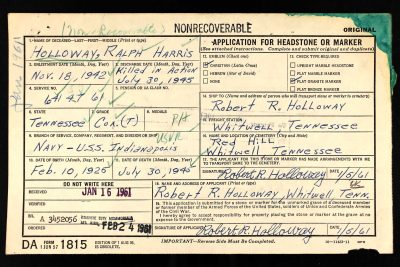 (Non Recoverable)
NONRECOVERABLE
ORIGINAL
1. NAME OF DECEASED—LAST—FIRST—MIDDLE (Print or type)
HOLLOWAY, RALPH HARRIS
APPLICATION FOR HEADSTONE OR MARKER
(See attached instructions. Complete and submit original and duplicate)
2. ENLISTMENT DATE (Month, Day, Year)
Nov. 18, 1942
Killed in Action
July 30, 1945
4. SERVICE NO.
641 47 61
5. PENSION OR VA CLAIM NO.
6. STATE
Tennessee
Cox. (T)
8. MEDALS
PH
9. BRANCH OF SERVICE, COMPANY, REGIMENT, AND DIVISION OR SHIP
USNR
NAVY - U.S.S. Indianapolis
10. DATE OF BIRTH (Month, Day, Year)
Feb. 10, 1925
11. DATE OF DEATH (Month, Day, Year)
July 30, 1945
12. EMBLEM (Check one)
CHRISTIAN (Latin Cross)
HEBREW (Star of David)
NONE
13. CHECK TYPE REQUIRED
UPRIGHT MARBLE HEADSTONE
FLAT MARBLE MARKER
FLAT GRANITE MARKER
FLAT BRONZE MARKER
14. SHIP TO (Name and address of person who will transport stone or marker to cemetery)
Robert R. Holloway
15. FREIGHT STATION
Whitwell Tennessee
16. NAME AND LOCATION OF CEMETERY (City and State)
Red Hill
Whitwell Tennessee
17. THE APPLICANT FOR THIS STONE OR MARKER HAS MADE ARRANGEMENTS WITH ME TO TRANSPORT SAME TO THE CEMETERY.
Robert R. Holloway 1/5/61
DO NOT WRITE HERE
RECEIVED
JAN 16 1961
FEB 24 1961
18. NAME AND ADDRESS OF APPLICANT (Print or type)
Robert R. Holloway Whitwell Tenn.
Application is submitted for a stone or marker for the unmarked grave of a deceased member or former member of the Armed Forces of the United States, soldiers of the Union and Confederate Armies of the Civil War.
I hereby agree to accept responsibility for properly placing the stone or marker at the grave at no expense to the Government.
SIGNATURE OF APPLICANT
Robert R. Holloway
DATE
1/5/61
DA FORM 1 JUN 57 1815
EDITION OF 1 AUG 56 IS OBSOLETE.
IMPORTANT—Reverse Side Must Be Completed.